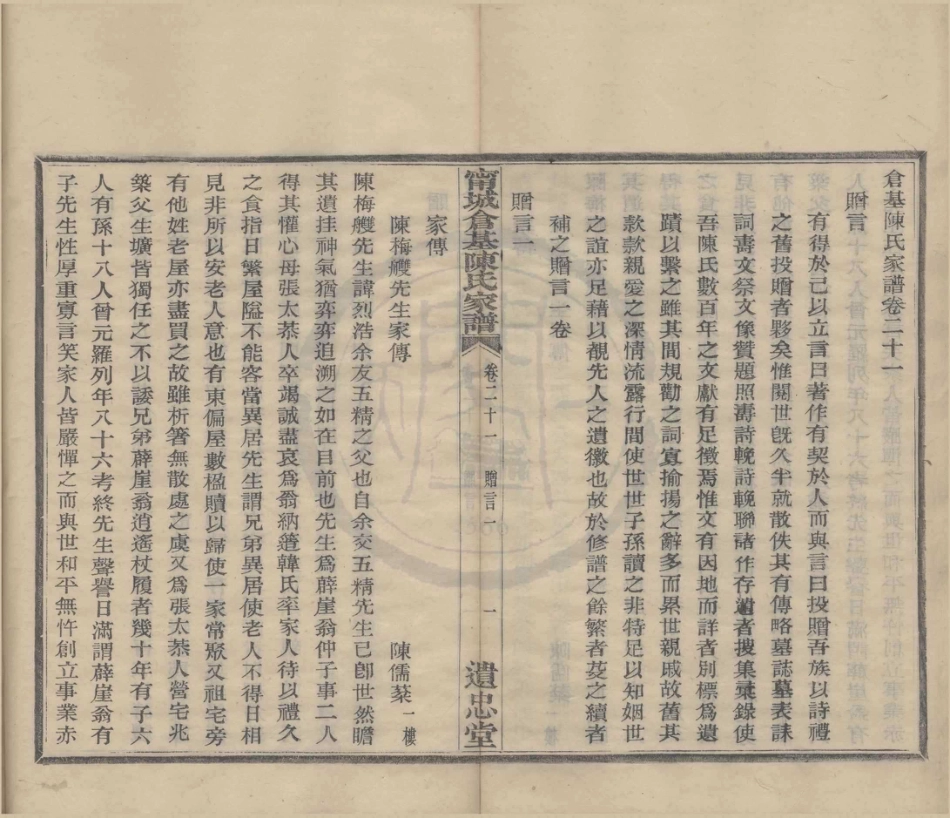 倉基陳氏家譜卷二十一
贈言
有得於己以立言曰著作有契於人而與言曰投贈吾族以詩禮
之舊投贈者夥矣惟閱世旣久半就散佚其有傳略墓誌墓表誄
詞壽文祭文像贊題照壽詩輓詩輓聯諸作存者搜集彙錄使
吾陳氏數百年之文獻有足徵焉惟文有因地而詳者別標爲遺
蹟以繫之雖其間規勸之詞寡揄揚之辭多而累世親戚故舊其
款款親愛之深情流露行間使世世子孫讀之非特足以知姻世
之誼亦足藉以覩先人之遺徽也故於修譜之餘繁者芟之續者
補之贈言一卷
贈言一
家傳
陳梅艭先生家傳
陳儒棻 一樓
陳梅艭先生諱烈浩余友五精之父也自余交五精先生已卽世然瞻
其遺挂神氣猶弈弈迫溯之如在目前也先生爲薜崖翁仲子事二人
得其懽心母張太恭人卒竭誠盡哀爲翁納簉韓氏率家人待以禮久
之食指日繁屋隘不能容當異居先生謂兄弟異居使老人不得日相
見非所以安老人意也有東偏屋數楹贖以歸使一家常聚又祖宅旁
有他姓老屋亦盡買之故雖析箸無散處之虞又爲張太恭人營宅兆
築父生壙皆獨任之不以諉兄弟薜崖翁逍遙杖履者幾十年有子六
人有孫十八人晉元羅列年八十六考終先生聲譽日滿謂薜崖翁有
子先生性厚重寡言笑家人皆嚴憚之而與世和平無忤創立事業赤
甯城倉基陳氏家譜
卷二十一
贈言一
一
遺忠堂